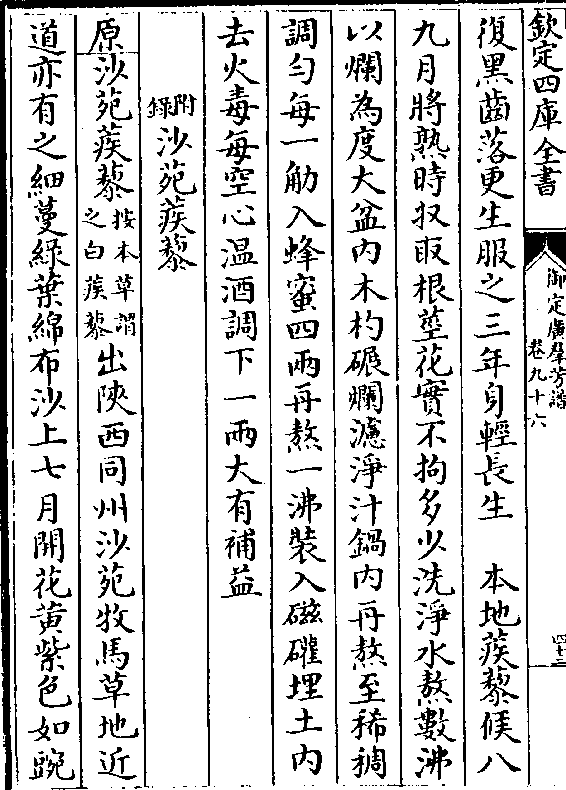 欽定四庫全書
御定廣羣芳譜
卷九十六
四十三
復黑齒落更生服之三年身輕長生　本地蒺藜候八
九月將熟時収取根莖花實不拘多少洗淨水熬數沸
以爛為度大盆内木杓碾爛濾淨汁鍋内再熬至稀稠
調勻每一觔入蜂蜜四兩再熬一沸裝入磁礶埋土内
去火毒每空心温酒調下一兩大有補益
附錄沙苑蒺藜
原沙苑蒺藜按本草謂之白蒺藜出陜西同州沙苑牧馬草地近
道亦有之細蔓綠葉綿布沙上七月開花黄紫色如豌